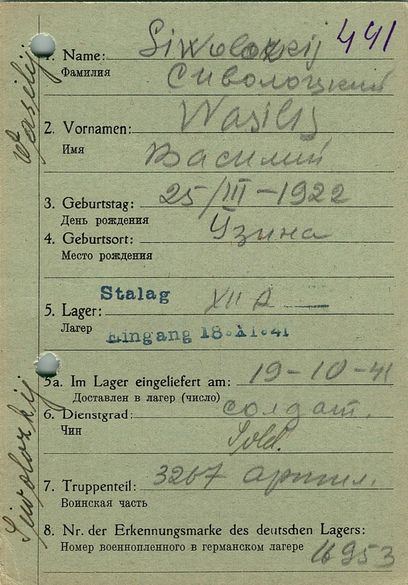 441
1. Name: Siwolozkij
Фамилия Сиволоцкий
2. Vornamen: Wasilij
Имя Василий
3. Geburtstag: 25/III-1922
День рождения
4. Geburtsort: Узина
Место рождения
Stalag
5. Lager: XII A
Лагер Eingang 18.XI.41
5a. Im Lager eingeliefert am: 19-10-41
Доставлен в лагер (число)
6. Dienstgrad: солдат.
Чин Sold.
7. Truppenteil: 3267 артил.
Воинская часть
8. Nr. der Erkennungsmarke des deutschen Lagers:
Номер военнопленного в германском лагере
Wasilij
Siwolozkij